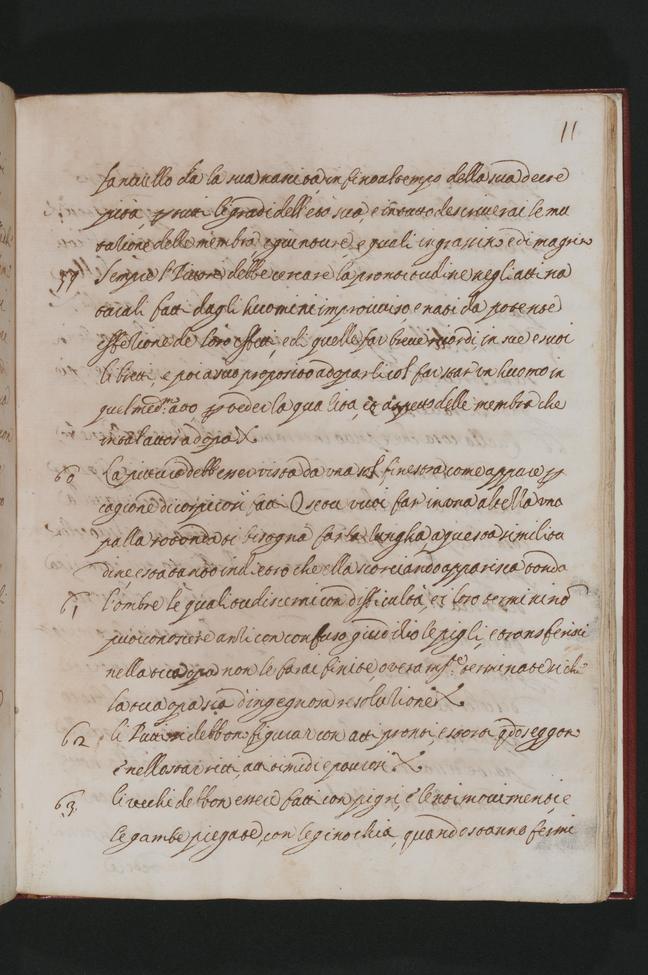 11
fanciullo da la sua natività infino al tempo della sua decre
pità p tutti li gradi dell'età sua, e in tutto descriverai le mu
tatione delle membra e giunture, e quali ingrassino ed i magrino
59 Sempre l'Pittore debbe cercare la prontitudine negli atti na
turali fatti dagli huomini improviso e nati da potente
effetione de loro effetti, e di quelle far brevi ricordi in sue suoi
libretti, e poi a suo proposito adoparli col far star un huomo in
quel med.mo atto p veder la qualità, et aspetto delle membra che
in tal atto s'adopra
60 La pittura debb'esser vista da una sol finestra come appare p
cagione di corpi così fatti O se tu vuoi far in una altella una
palla rotonda ti bisogna farla lungha a questa similitu
dine, e sta tanto indietro che ella scorciando apparisca tonda
61 l'ombre le quali tu discerni con difficultà, et i loro termini nõ
puoi conoscere anzi con confuso giuditio le pigli, e transferisci
nella tua opa non le farai finite, overa m.te terminate si che
la tua opa sia d'ingegnosa resolutione
62 li Putti si debbon figurar con atti pronti, e storti qdo seggono
e nello star ritti, atti timidi e paurosi
63 li vecchi debbon essere fatti con pigri, e lenti movimenti, e
le gambe piegate, con le ginochia, quando stanno fermi